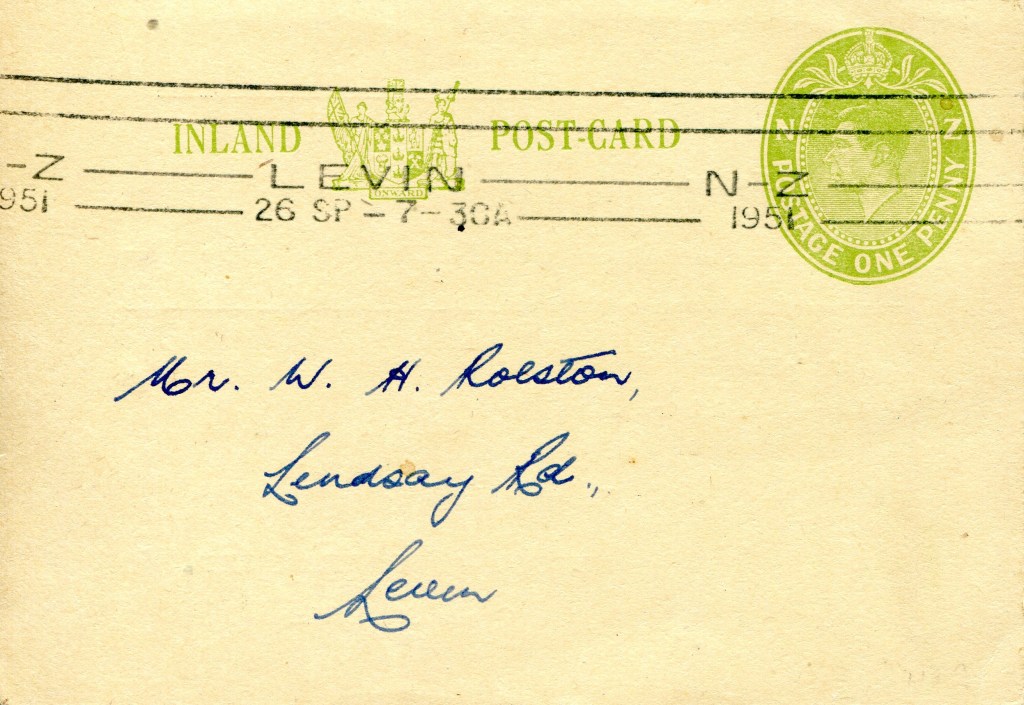 INLAND POST-CARD
ONWARD
N Z
POSTAGE ONE PENNY
-Z LEVIN N-Z
951 26 SP-7-30A 1951
Mr. W. H. Rolston,
Lindsay Rd.,
Levin